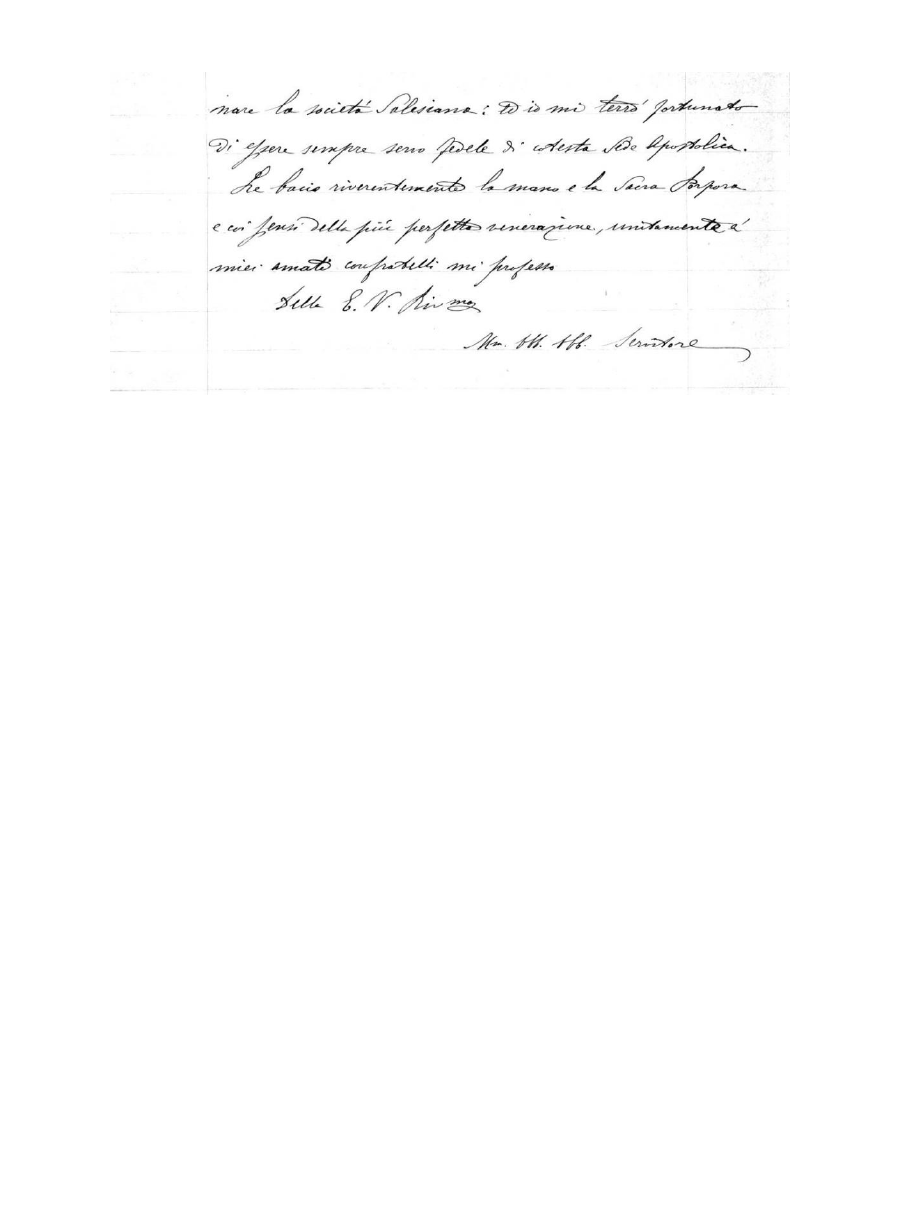 nare la società Salesiana: ed io mi terrò fortunato
di essere sempre servo fedele di cotesta Sede Apostolica.
Le bacio riverentemente la mano e la Sacra Porpora
e coi sensi della più perfetta venerazione, unitamente a'
miei amati confratelli mi professo
Della E. V. Rivma
Um. Obb. Servitore